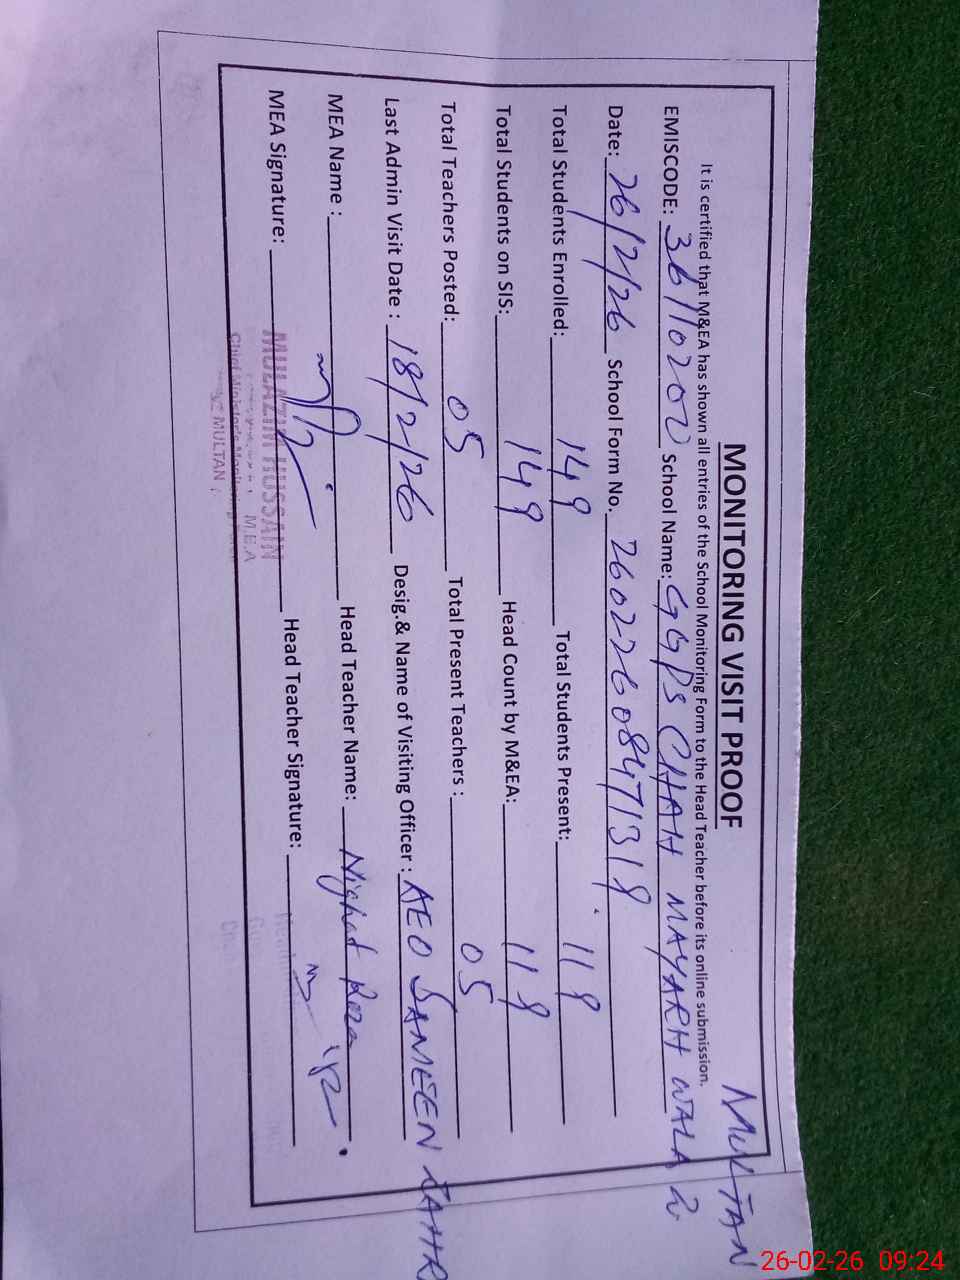 MULTAN
MONITORING VISIT PROOF
It is certified that M&EA has shown all entries of the School Monitoring Form to the Head Teacher before its online submission.
EMISCODE: 36110202 School Name: GGPS CHAH MAYARH WALA 2
Date: 26/2/26 School Form No. 26022608471319
Total Students Enrolled: 149 Total Students Present: 119
Total Students on SIS: 149 Head Count by M&EA: 119
Total Teachers Posted: 05 Total Present Teachers : 05
Last Admin Visit Date : 18/2/26 Desig.& Name of Visiting Officer : AEO SAMEEN
MEA Name : Head Teacher Name: Nighat
MEA Signature: Head Teacher Signature:
MULAZIM HUSSAIN
M.E.A
Chief Minister's Monitoring
MULTAN
26-02-26 09:24